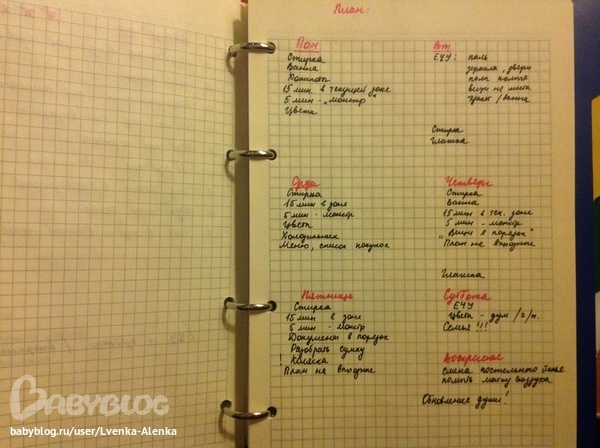 План:
Пон
Стирка
Ванна
Комнаты
15 мин. в текущей зоне
5 мин - „монстр"
Цветы
Вт
ЕЧУ: пыль
зеркала, двери
полы
вещи на места
туалет / ванна
Стирка
Глажка
Среда
Стирка
15 мин в зоне
5 мин - монстр
Цветы
Холодильник
Меню, список покупок
Четверг
Стирка
Ванна
15 мин в тек. зоне
5 мин - монстр
„Вещи в порядок"
План на выходные
Глажка
Пятница
Стирка
15 мин в зоне
5 мин - монстр
Документы в порядок
Разобрать сумку
! Коляска
План на выходные
Суббота
ЕЧУ
Цветы - душ
Семья!!!
Воскресенье
смена постельного белья
помыть мойку воздуха
Обновление души!
BABYBLOG
babyblog.ru/user/Lvenka-Alenka